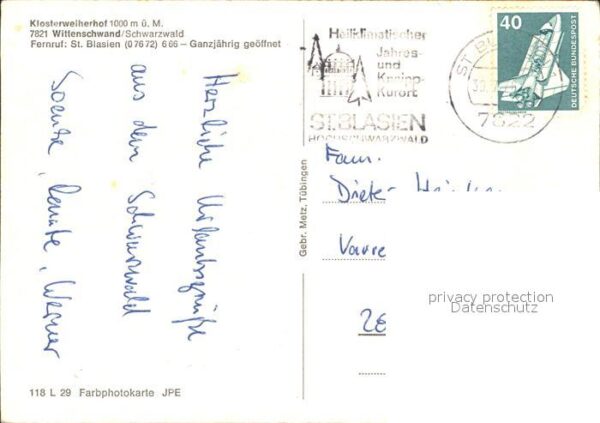 Klosterweiherhof 1000 m ü. M.
7821 Wittenschwand/Schwarzwald
Fernruf: St. Blasien (07672) 666 – Ganzjährig geöffnet
Herzliche Urlaubsgrüße
aus dem Schwarzwald
Renate, Werner
118 L 29 Farbphotokarte JPE
Gebr. Metz, Tübingen
Heilklimatischer
Jahres-
und
Kneipp-
Kurort
ST.BLASIEN
HOCHSCHWARZWALD
ST BL
7822
40
DEUTSCHE BUNDESPOST
Fam.
Dieter
privacy protection
Datenschutz